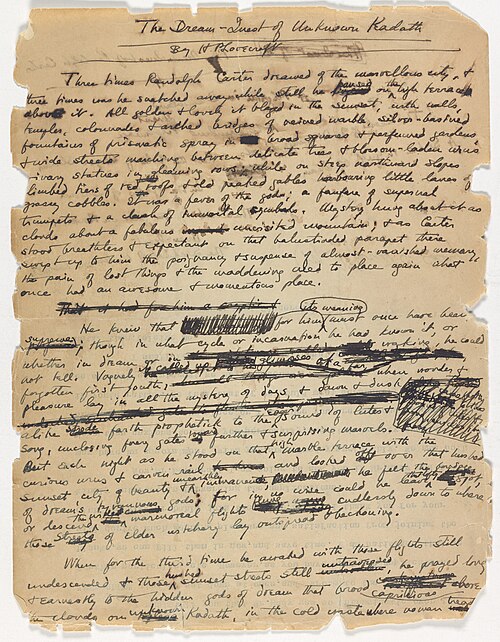 The Dream-Quest of Unknown Kadath
By H P Lovecraft
Three times Randolph Carter dreamed of the marvellous city, &
three times was he snatched away while still he paused on the high terrace
above it. All golden & lovely it blazed in the sunset, with walls,
temples, colonnades & arched bridges of veined marble, silver-basined
fountains of prismatic spray in broad squares & perfumed gardens
& wide streets marching between delicate trees & blossom-laden urns
& ivory statues in gleaming rows; while on steep northward slopes
climbed tiers of red roofs & old peaked gables harbouring little lanes of
grassy cobbles. It was a fever of the gods; a fanfare of supernal
trumpets & a clash of immortal cymbals. Mystery hung about it as
clouds about a fabulous unvisited mountain; & as Carter
stood breathless & expectant on that balustraded parapet there
swept up to him the poignancy & suspense of almost-vanished memory,
the pain of lost things, & the maddening need to place again what
once had an awesome & momentous place.
He knew that for him its meaning must once have been
supreme; though in what cycle or incarnation he had known it, or
whether in dream or in waking, he could
not tell. Vaguely it called up glimpses of a far
forgotten first youth, when wonder &
pleasure lay in all the mystery of days, & dawn & dusk
alike strode forth prophetick to the sound of lutes &
song; unclosing faery gates toward further & surprising marvels.
But each night as he stood on that high marble terrace with the
curious urns & carven rail and looked off over that hushed
sunset city of beauty & unearthly immanence, he felt the
of dream's tyrannous gods; for in no wise could he leave that
or descend the marmoreal flights endlessly down to where
those streets of elder witchery lay outspread & beckoning.
When for the third time he awaked with those flights still
undescended & those hushed sunset streets still untraversed, he prayed long
& earnestly to the hidden gods of dream that brood capricious above
the clouds on unknown Kadath, in the cold waste where no man treads